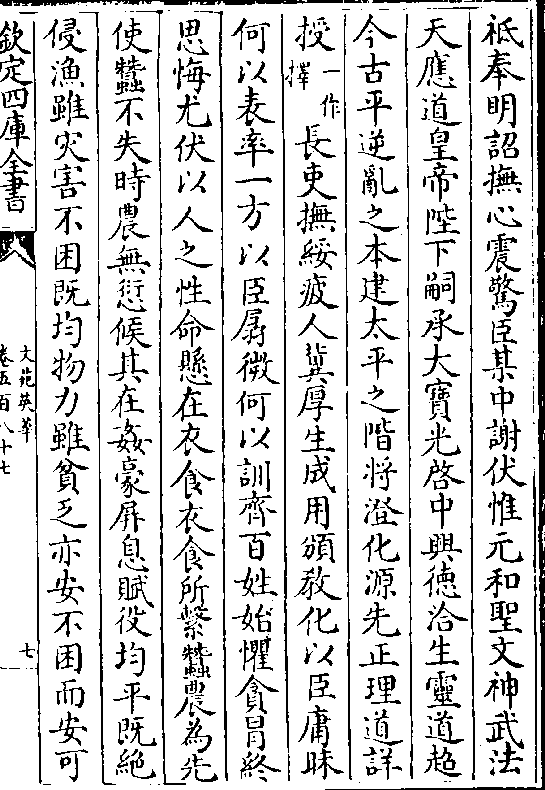 祗奉明詔撫心震驚臣某中謝伏惟元和聖文神武法
天應道皇帝陛下嗣承大寶光啓中興徳洽生靈道超
今古平逆亂之本建太平之階將澄化源先正理道詳
授一作擇長吏撫綏疲人兾厚生成用頒敎化以臣庸昧
何以表率一方以臣孱微何以訓齊百姓始懼貪冒終
思悔尤伏以人之性命懸在衣食衣食所繫蠶農為先
使蠶不失時農無愆候其在姦豪屏息賦役均平既絶
侵漁雖灾害不困既均物力雖貧乏亦安不困而安可
欽定四庫全書
文苑英華
卷五百八十七
七